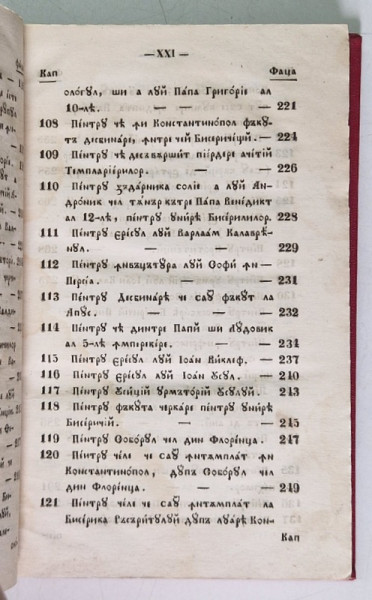 — XXI —
Кап Фаца
ологул, ши а луй Папа Григорїе ал
10-лѣ. — — — 221
108 Пентру чѣ ꙟн Константинопол фъку-
тъ десбинаре, ꙟнтре чей Бисеричещй. — 224
109 Пентру чѣ десъвършит пїердере ачѣтїй
Темпларїерилор. — — 226
110 Пентру зъдарника солїе а луй Ан-
дроник чел тънър кътре Папа Венедикт
ал 12-лѣ, пентру унирѣ Бисерилилор. 228
111 Пентру ересул луй Варлаам Калаврѣ-
нул. — — — 229
112 Пентру ꙟнвъцътура луй Софи ꙟн
Персїа. — — — 231
113 Пентру Десбинарѣ че сау фъкут ла
Апус. — — — 232
114 Пентру чѣ динтре Папй ши Лудовик
ал 5-лѣ ꙟмперекїере. — — 234
115 Пентру ересул луй Іоан Виклеф. — 237
116 Пентру ересул луй Іоан Хусул. — 240
117 Пентру уницїй Урмъторїй Хусулуй. — 243
118 Пентру фъкута черкаре пентру унирѣ
Бисеричїй. — — — 245
119 Пентру Соборул чел дин Флоренца. — 247
120 Пентру челе че сау ꙟнтъмплат ꙟн
Константинопол, дупъ Соборул чел
дин Флоренца. — — — 249
121 Пентру челе че сау ꙟнтъмплат ла
Бисерика Ръсъритулуй дупъ луарѣ Кон-
Кап